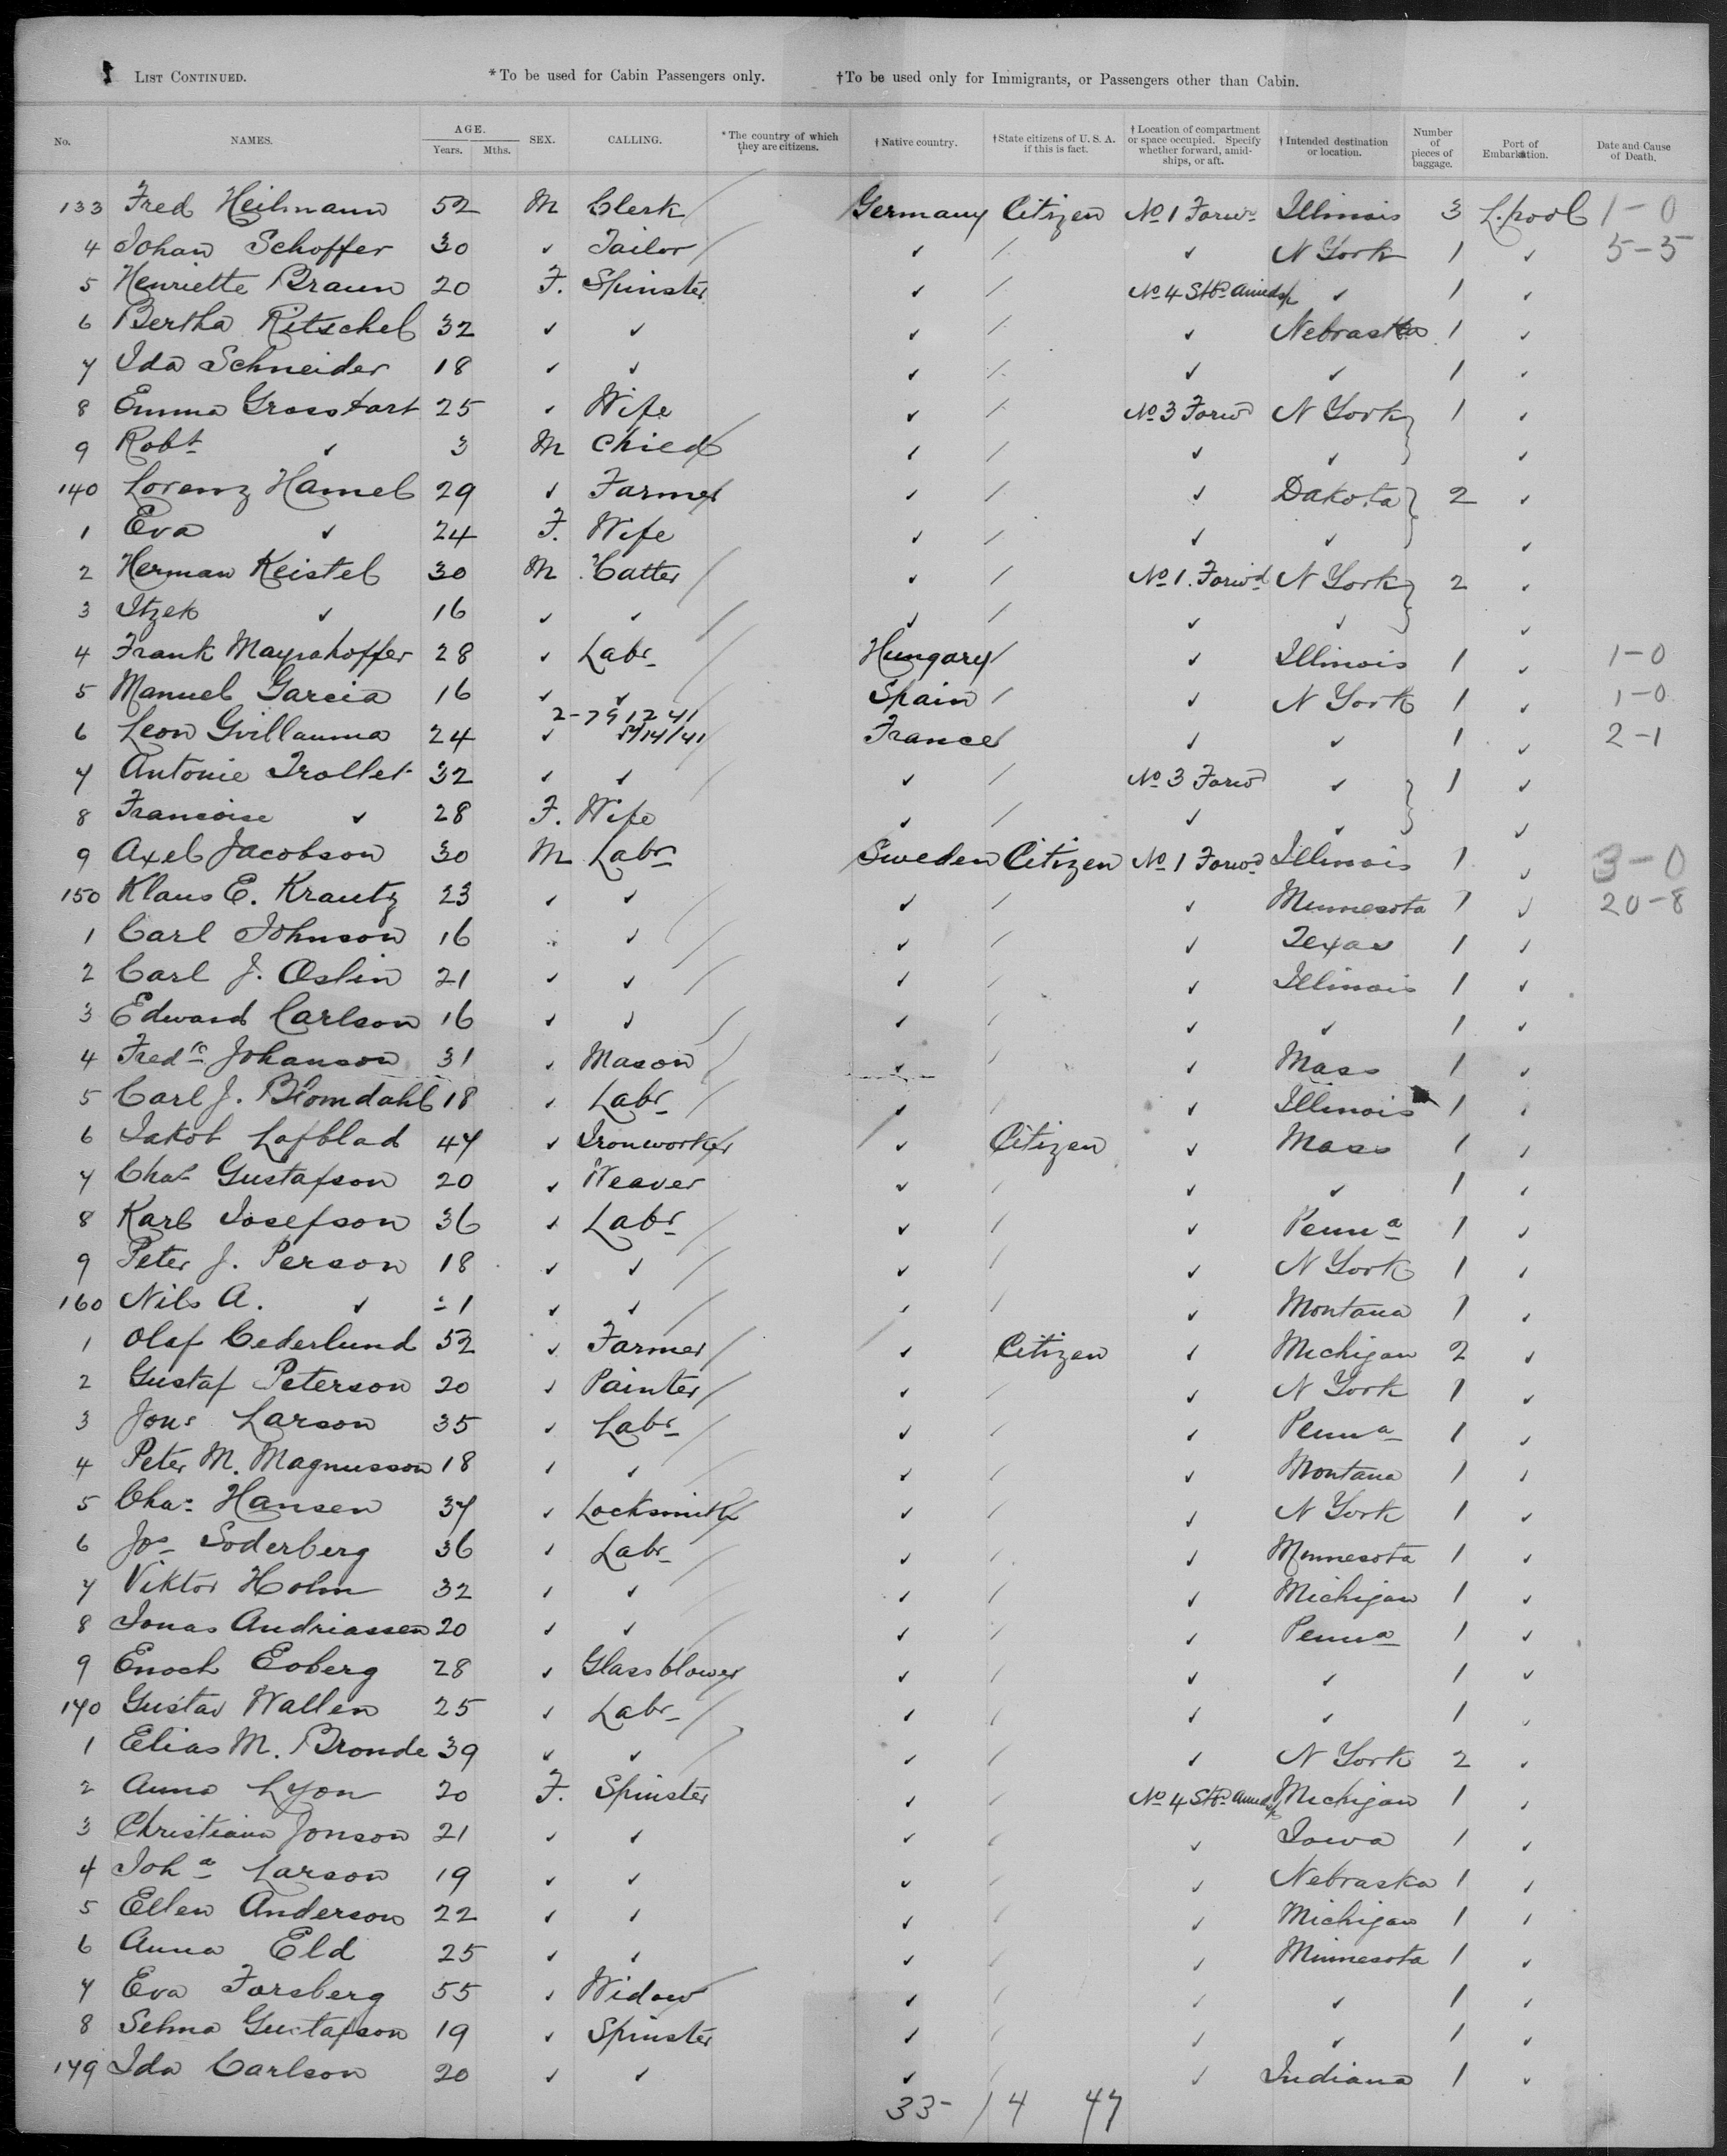 LIST CONTINUED. *To be used for Cabin Passengers only. †To be used only for Immigrants, or Passengers other than Cabin.
No. NAMES. AGE. Years. Mths. SEX. CALLING. *The country of which they are citizens. †Native country. †State citizens of U. S. A. if this is fact. †Location of compartment or space occupied. Specify whether forward, amidships, or aft. †Intended destination or location. Number of pieces of baggage. Port of Embarkation. Date and Cause of Death.
133 Fred Heilmann 52 M Clerk / Germany Citizen No 1 Forwd Illinois 3 L.pool 1-0
4 Johan Schoffer 30 ✓ Tailor / ✓ / ✓ N York 1 ✓ 5-5
5 Henriette Braun 20 F. Spinster ✓ / No 4 ✓ 1 ✓
6 Bertha Ritschel 32 ✓ ✓ ✓ / ✓ Nebraska 1 ✓
7 Ida Schneider 18 ✓ ✓ ✓ / ✓ ✓ 1 ✓
8 Emma Grosstart 25 ✓ Wife ✓ / No 3 Forwd N York 1 ✓
9 Robt ✓ 3 M Child ✓ / ✓ ✓ ✓
140 Lorenz Hamel 29 ✓ Farmer ✓ / ✓ Dakota 2 ✓
1 Eva ✓ 24 F. Wife ✓ / ✓ ✓ ✓
2 Herman Keistel 30 M Hatter / ✓ / No 1. Forwd N York 2 ✓
3 Itzek ✓ 16 ✓ ✓ / ✓ / ✓ ✓ ✓
4 Frank Mayrahoffer 28 ✓ Labr / Hungary / ✓ Illinois 1 ✓ 1-0
5 Manuel Garcia 16 ✓ ✓ / Spain / ✓ N York 1 ✓ 1-0
6 Leon Gvillauma 24 ✓ France / ✓ ✓ 1 ✓ 2-1
7 Antonie Trollet 32 ✓ ✓ / ✓ / No 3 Forwd ✓ 1 ✓
8 Francoise ✓ 28 F. Wife ✓ / ✓ ✓ ✓
9 Axel Jacobson 30 M Labr Sweden Citizen No 1 Forwd Illinois 1 ✓ 3-0
150 Klaus E. Krautz 23 ✓ ✓ / ✓ / ✓ Minnesota 1 ✓ 20-8
1 Carl Johnson 16 ✓ ✓ / ✓ / ✓ Texas 1 ✓
2 Carl J. Oslin 21 ✓ ✓ / ✓ / ✓ Illinois 1 ✓
3 Edward Carlson 16 ✓ ✓ / ✓ / ✓ ✓ 1 ✓
4 Fredk Johanson 31 ✓ Mason / ✓ / ✓ Mass 1 ✓
5 Carl J. Blomdahl 18 ✓ Labr / ✓ / ✓ Illinois 1 ✓
6 Jakob Lofblad 47 ✓ Ironworker / ✓ Citizen ✓ Mass 1 ✓
7 Chas Gustafson 20 ✓ Weaver ✓ / ✓ ✓ 1 ✓
8 Karl Josefson 36 ✓ Labr / ✓ / ✓ Penna 1 ✓
9 Peter J. Person 18 ✓ ✓ / ✓ / ✓ N York 1 ✓
160 Nils A. ✓ ✓ ✓ / ✓ / ✓ Montana 1 ✓
1 Olof Cederlund 52 ✓ Farmer / ✓ Citizen ✓ Michigan 2 ✓
2 Gustaf Peterson 20 ✓ Painter / ✓ / ✓ N York 1 ✓
3 Jons Larson 35 ✓ Labr / ✓ / ✓ Penna 1 ✓
4 Peter M. Magnusson 18 ✓ ✓ / ✓ / ✓ Montana 1 ✓
5 Chas Hansen 37 ✓ Locksmith ✓ / ✓ N York 1 ✓
6 Jos Soderberg 36 ✓ Labr / ✓ / ✓ Minnesota 1 ✓
7 Viktor Holm 32 ✓ ✓ / ✓ / ✓ Michigan 1 ✓
8 Jonas Andriassen 20 ✓ ✓ / ✓ / ✓ Penna 1 ✓
9 Enoch Eoberg 28 ✓ Glassblower ✓ / ✓ ✓ 1 ✓
170 Gustav Wallen 25 ✓ Labr / ✓ / ✓ ✓ 1 ✓
1 Elias M. Bronde 39 ✓ ✓ / ✓ / ✓ N York 2 ✓
2 Anna Lyon 20 F. Spinster ✓ / No 4 Michigan 1 ✓
3 Christiana Jonson 21 ✓ ✓ ✓ / ✓ Iowa 1 ✓
4 Joha Larson 19 ✓ ✓ ✓ / ✓ Nebraska 1 ✓
5 Ellen Anderson 22 ✓ ✓ ✓ / ✓ Michigan 1 ✓
6 Anna Eld 25 ✓ ✓ ✓ / ✓ Minnesota 1 ✓
7 Eva Forsberg 55 ✓ Widow ✓ / ✓ ✓ 1 ✓
8 Selma Gustafson 19 ✓ Spinster ✓ / ✓ ✓ 1 ✓
179 Ida Carlson 20 ✓ ✓ ✓ / ✓ Indiana 1 ✓
33- / 4 47